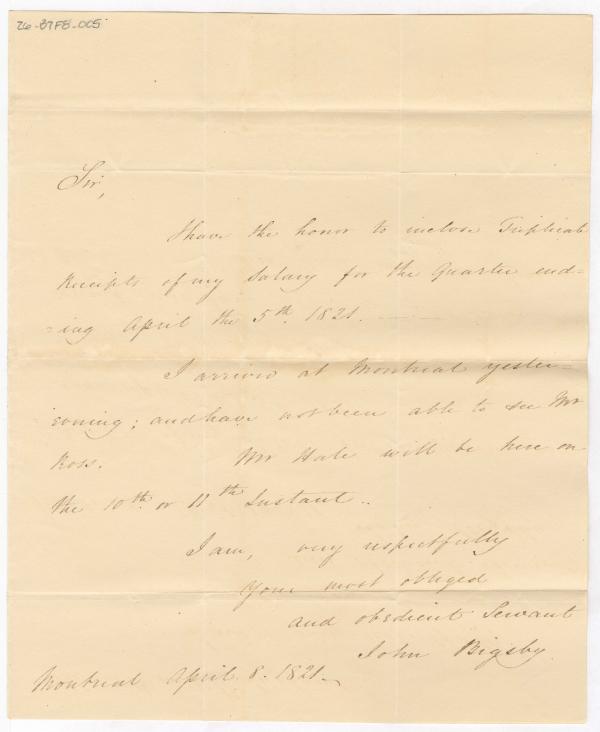 76-87FB-005
Sir,
I have the honor to inclose Triplicate
Receipts of my Salary for the Quarter end=
=ing April the 5th. 1821.
I arrived at Montreal yester=
evening; and have not been able to see Mr
Ross. Mr Hale will be here on
the 10th. or 11th Instant..
I am, very respectfully
Your most obliged
and obedient Servant
John Bigsby.
Montreal April 8. 1821.